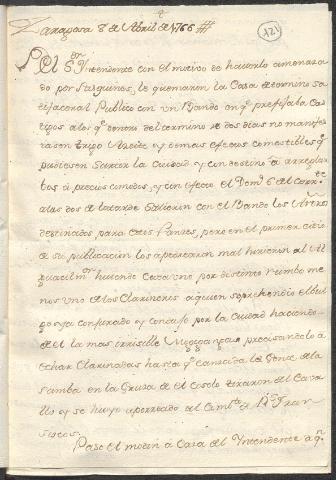 Zaragoza 8 de Abril de 1766
121
El Sr Yntendente con el motivo de haverlo amenaza
do por Pasquines, le quemarian la Casa determino sa
tisfacer al Publico con un Bando en qe prefijaba Cas
tigos a los qe dentro del termino de dos dias no manifes
tasen trigo Aceite y demas efectos comestibles qe
pudiesen surtir la Ciudad y con destino a
a precios comodos, y con efecto el Domo 6 del
a las dos de la tarde Salieron con el Bando los
destinados para estos Panxes, pero en el primer citio
de su publicacion los apedrearon mal hirieron al Al
guacil mor huiendo Cada uno por distinto rumbo me
nos uno de los Clarineros a quien soprehendio el bul
go ya conjurado y condujo por la Ciudad haciendo
de el la mas irrisible precisandolo a
echar Clarinadas hasta qe cansada la Gente de la
en la Cruz del Cosolo tiraron del Cava
llo y se huyo aporreado al Combto de Sn Fran
cisco.
Paso el motin a Casa del Yntendente a qn